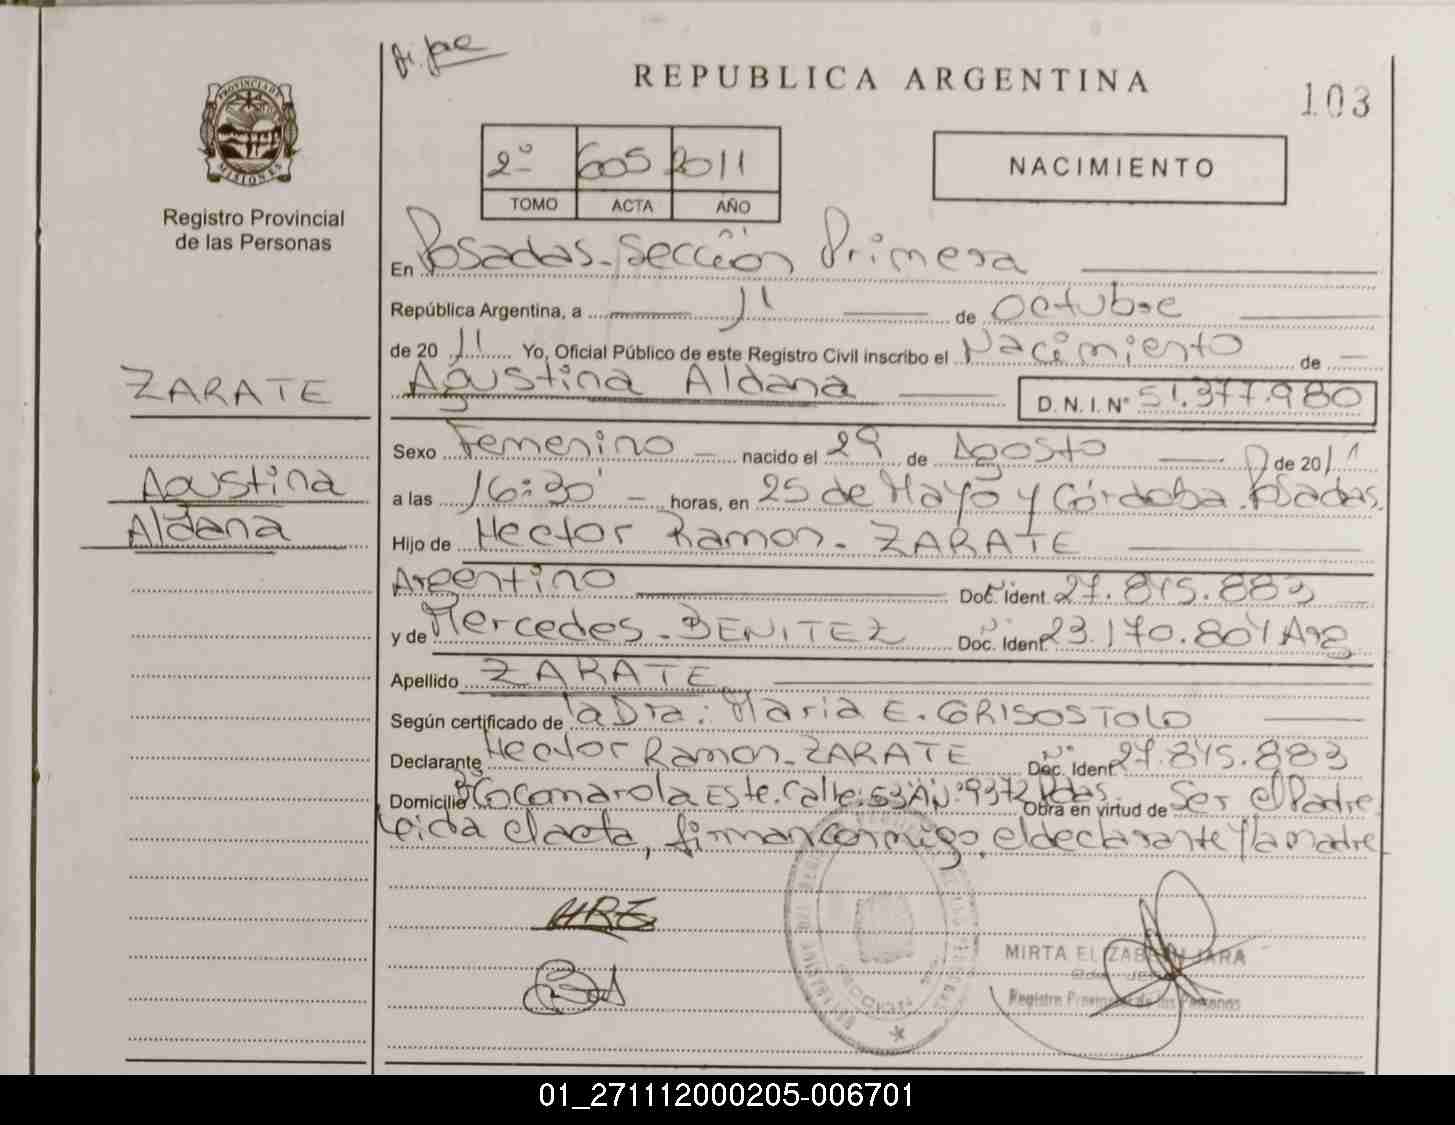 REPUBLICA ARGENTINA
103
PROVINCIA DE
MISIONES
Registro Provincial
de las Personas
2º 605 2011
TOMO ACTA AÑO
NACIMIENTO
En Posadas - Sección Primera
República Argentina, a 11 de Octubre
de 20 11 Yo, Oficial Público de este Registro Civil inscribo el Nacimiento de
ZARATE
Agustina Aldana D. N. I. Nº 51.377.980
Sexo Femenino nacido el 29 de Agosto de 2011
Agustina
a las 16:30' horas, en 25 de Mayo y Córdoba. Posadas.
Aldana
Hijo de Hector Ramon - ZARATE
Argentino Doc. Ident. 27.845.883
y de Mercedes - BENITEZ Doc. Ident. 23.170.804 Arg
Apellido ZARATE
Según certificado de la Dra: Maria E. GRISOSTOLO
Declarante Hector Ramon - ZARATE Doc. Ident. 27.845.883
Domicilio Bº Cocomarola Este. Calle: 53A Nº: 9372 Pdas. Obra en virtud de Ser el Padre
Leida el acta, firman conmigo, el declarante y la madre
HRZ
MIRTA ELIZABETH JARA
Registro Provincial de las Personas
01_271112000205-006701